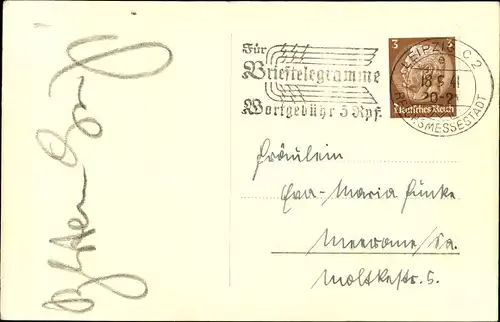 Für
Brieftelegramme
Wortgebühr 5 Rpf.
3 3
Deutsches Reich
LEIPZIG C 2
18.5.41
REICHSMESSESTADT
Fräulein
Eva-Maria Funke
Meerane/Sa.
Moltkestr. 5.